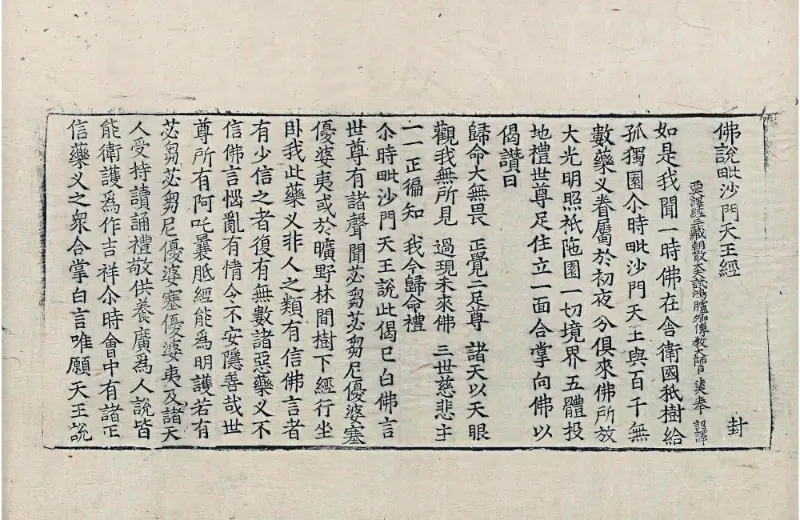 佛說毗沙門天王經 封
譯經三藏朝散大夫試鴻臚卿傳教大師臣法天奉 詔譯
如是我聞一時佛在舍衛國祇樹給
孤獨園尒時毗沙門天王與百千無
數藥叉眷屬於初夜分俱來佛所放
大光明照祇陁園一切境界五體投
地禮世尊足住立一面合掌向佛以
偈讚曰
歸命大無畏 正覺二足尊 諸天以天眼
觀我無所見 過現未來佛 三世慈悲主
一一正徧知 我今歸命禮
尒時毗沙門天王說此偈已白佛言
世尊有諸聲聞苾芻苾芻尼優婆塞
優婆夷或於曠野林間樹下經行坐
卧我此藥叉非人之類有信佛言者
有少信之者復有無數諸惡藥叉不
信佛言惱亂有情令不安隱善哉世
尊所有阿吒曩胝經能為明護若有
苾芻苾芻尼優婆塞優婆夷及諸天
人受持讀誦禮敬供養廣為人說皆
能衛護為作吉祥尒時會中有諸正
信藥叉之衆合掌白言唯願天王說